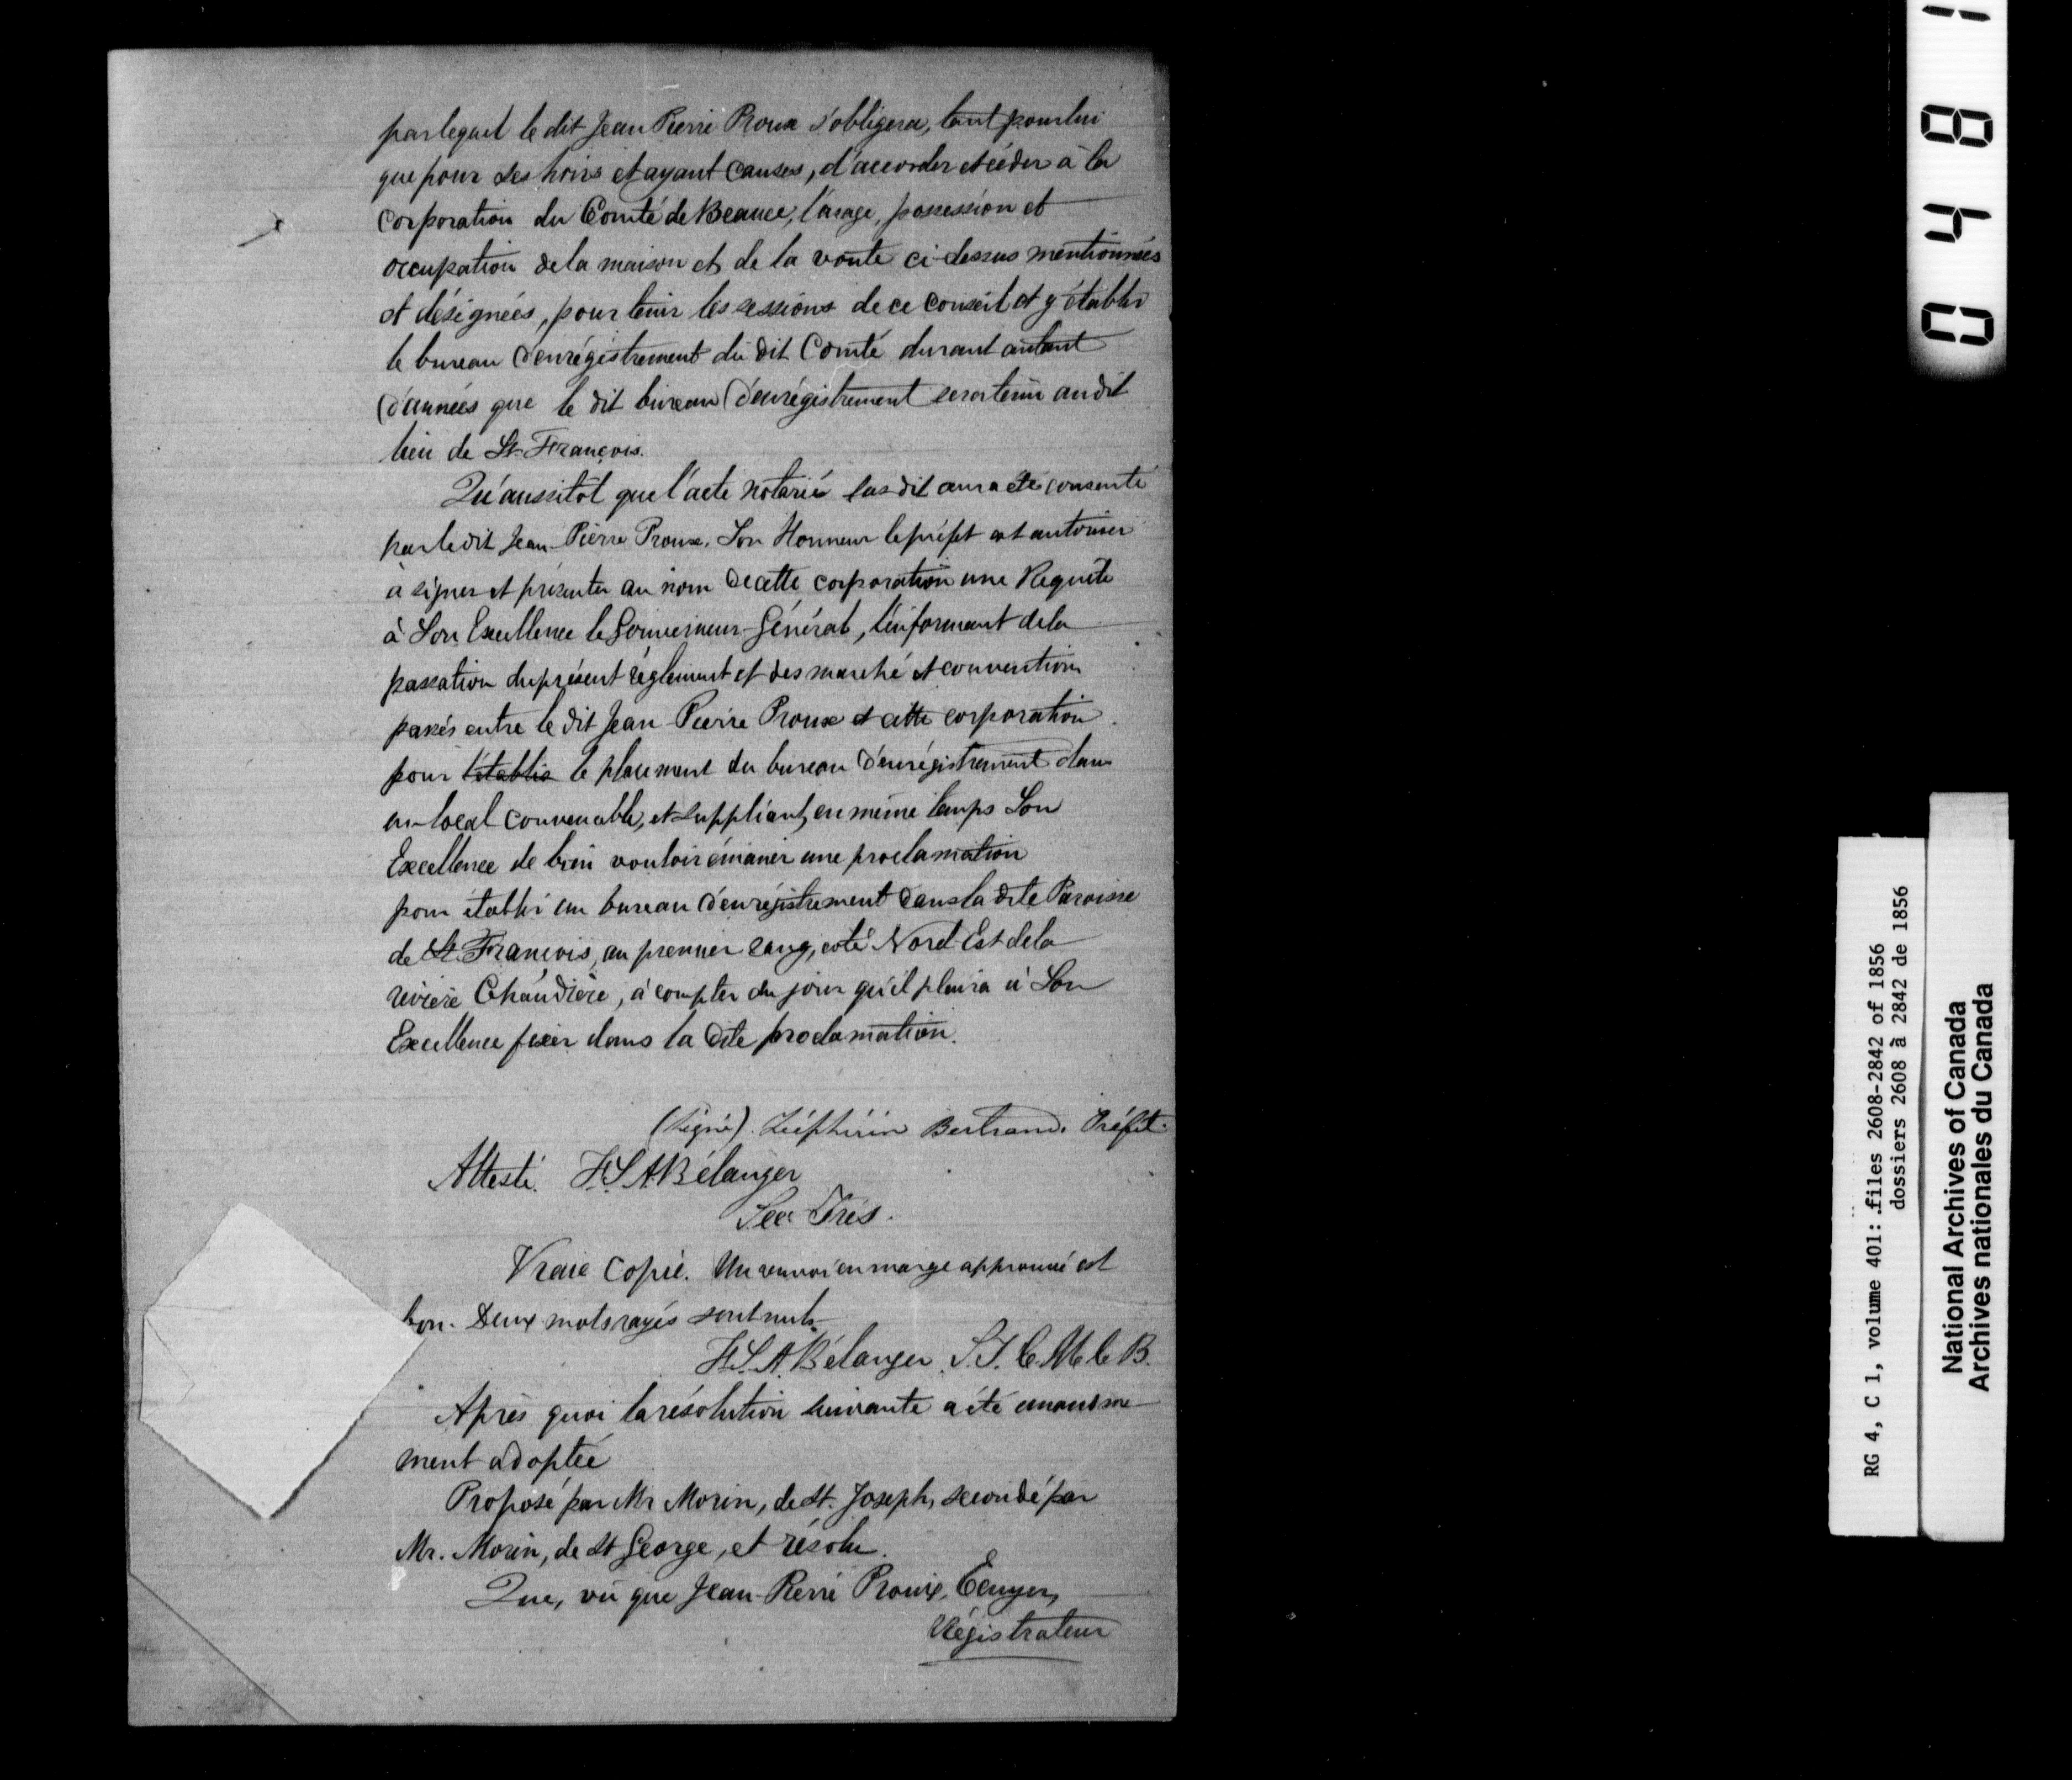 par lequel le dit Jean Pierre Proux s'obligera, tant pour lui
que pour ses hoirs et ayant causes, d'accorder et céder à la
corporation du Comté de Beauce, l'usage, possession et
occupation de la maison et de la voute ci-dessus mentionnées
et désignées, pour tenir les sessions de ce conseil et y établir
le bureau d'enrégistrement du dit Comté durant autant
d'années que le dit bureau d'enrégistrement sera tenu au dit
lieu de St. François.
Qu'aussitôt que l'acte notarié susdit aura été consenti
par le dit Jean-Pierre Proux, Son Honneur le préfet est autoriser
à signer et présenter au nom de cette corporation une Requête
à Son Excellence le Gouverneur-Général, l'informant de la
passation du présent règlement et des marché et convention
passés entre le dit Jean-Pierre Proux et cette corporation
pour l'établir le placement du bureau d'enrégistrement dans
un local convenable, et suppliant, en même temps Son
Excellence de bien vouloir émaner une proclamation
pour établir un bureau d'enrégistrement dans la dite Paroisse
de St. François, au premier rang, coté Nord-Est de la
rivière Chaudière, à compter du jour qu'il plaira à Son
Excellence fixer dans la dite proclamation.
(Signé). Zéphirin Bertrand. Préfet.
Attesté. F.S.A Bélanger
Sec Trés.
Vraie Copie. Un renvoi en marge approuvé est
bon. Deux mots rayés sont nuls.
F.S.A. Bélanger. S.T. C. M. C. B.
Après quoi la résolution suivante a été unanime-
ment adoptée
Proposé par Mr Morin, de St. Joseph, secondé par
Mr. Morin, de St George, et résolu.
Que, vû que Jean-Pierre Proux, Ecuyer,
Régistrateur
0481
RG 4, C 1, volume 401: files 2608-2842 of 1856
dossiers 2608 à 2842 de 1856
National Archives of Canada
Archives nationales du Canada